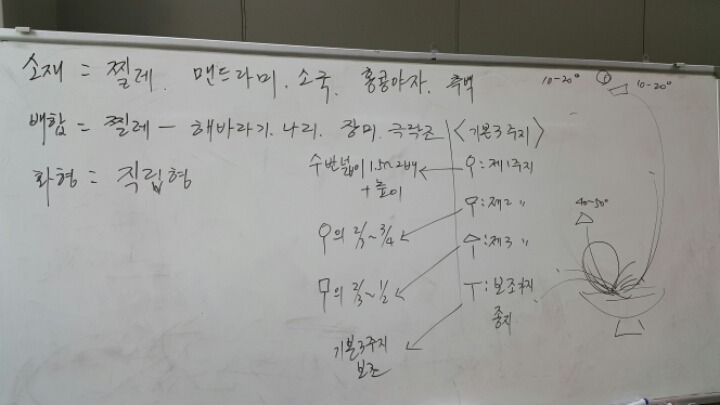 소재 = 찔레. 맨드라미. 소국. 홍콩야자. 측백
배합 = 찔레 - 해바라기. 나리. 장미. 극락조
화형 = 직립형
<기본3주지>
수반넓이 1.5~2배
+ 높이
○: 제1주지
□: 제2 〃
○의 2/3~3/4
△: 제3 〃
□의 2/3~1/2
T: 보조주지
종지
기본3주지
보조
10-20°
10-20°
40-50°